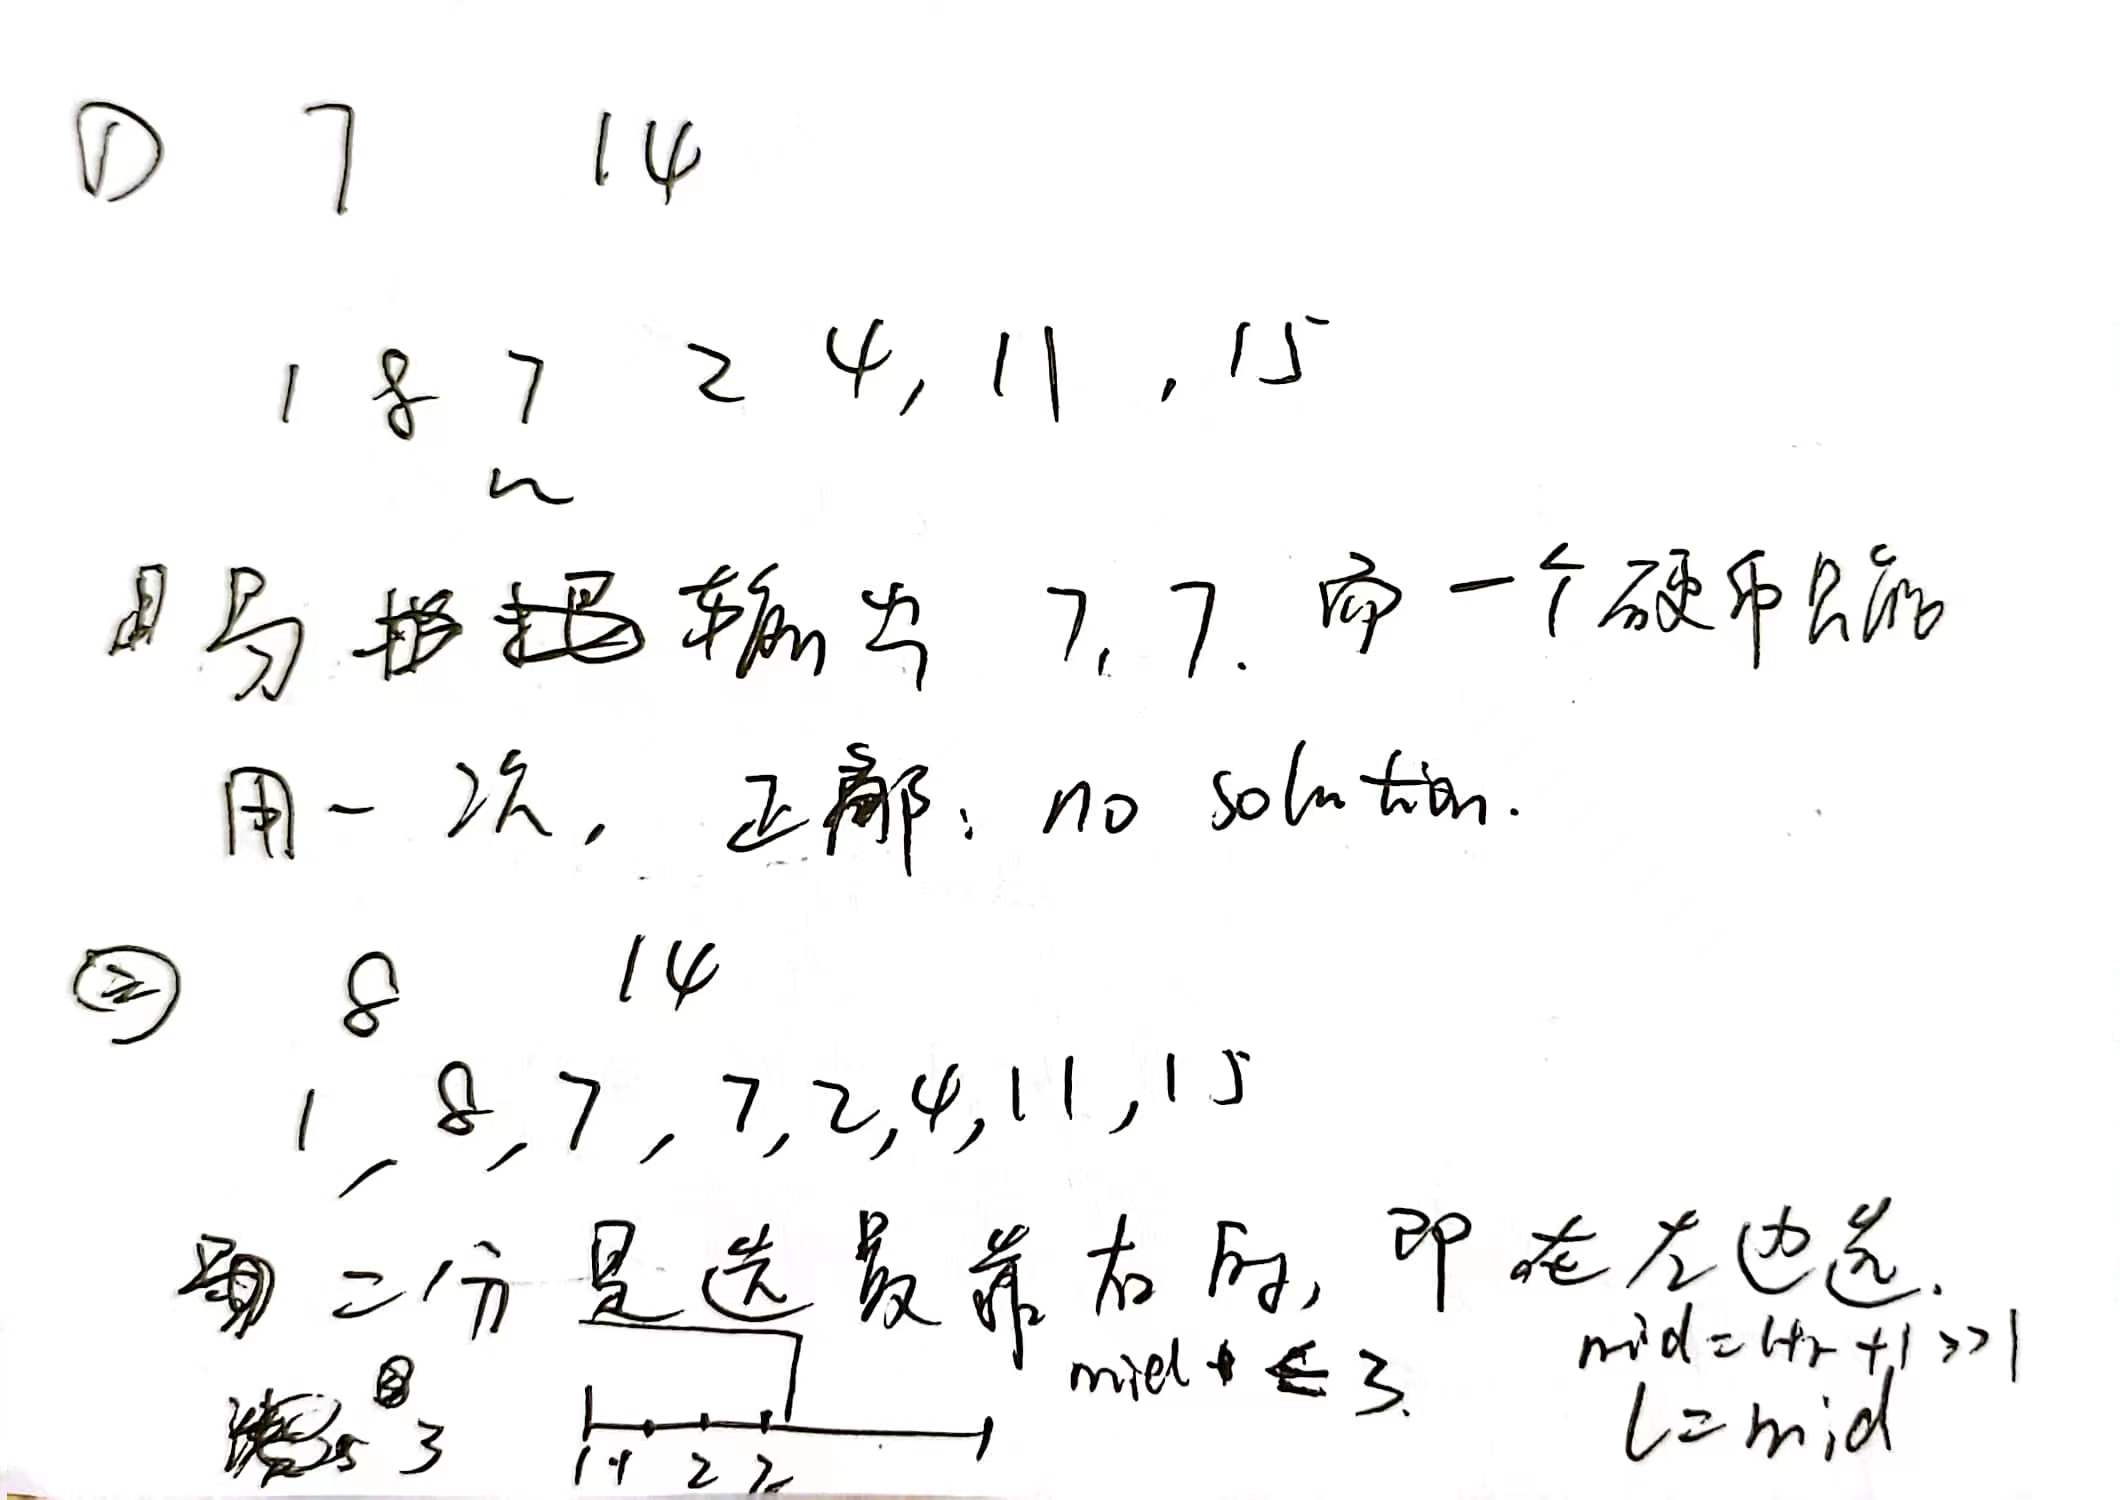 ① 7 14
1 8 7 2 4, 11, 15
易 输出 7, 7. 而一个硬币只能
用一次, 正解: no solution.
② 8 14
1, 8, 7, 7, 2, 4, 11, 15
二分是选最靠右的, 即在左边选.
mid ≤ 3. mid = l+r+1>>1
3 1 1 2 2 l = mid